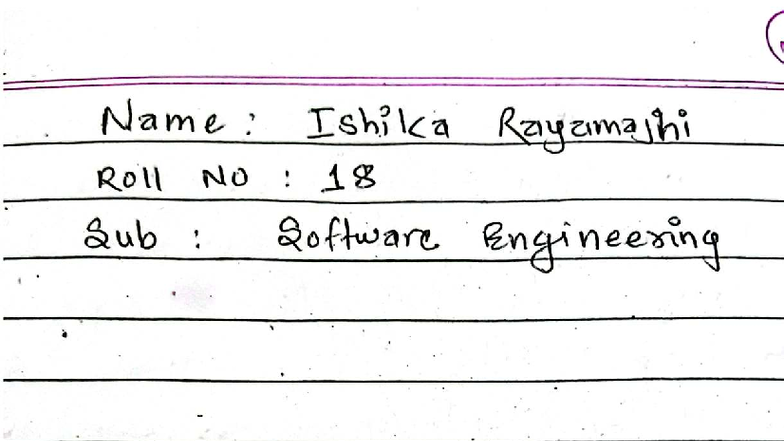 Name : Ishika Rayamajhi
Roll No : 18
Sub : Software Engineering